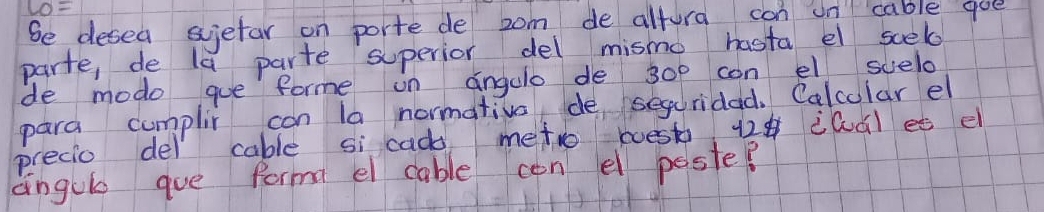 10=
Se desea sujetar un porte de 20m de altura con un cable que
parte, de la parte superior del mismo hasta el suelo
de modo que forme un ángulo de 30º con el suelo
para cumplir con la normativa de seguridad. Calcular el
precio del cable si cada metro cuesta 12$ ¿Cuál es el
ángulo que forma el cable con el poste?